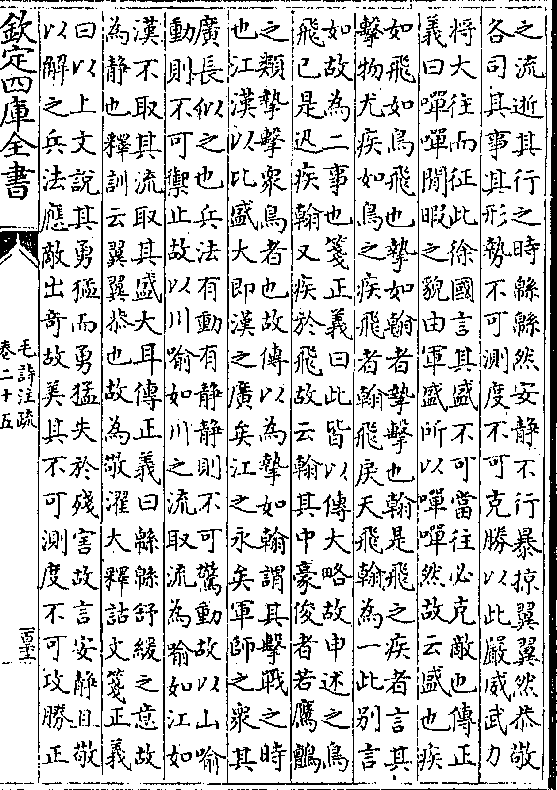 之流逝其行之時緜緜然安靜不行暴掠翼翼然恭敬
各司其事其形勢不可測度不可克勝以此嚴威武力
将大往而征此徐國言其盛不可當往必克敵也傳正
義曰嘽嘽閒暇之貌由軍盛所以嘽嘽然故云盛也疾
如飛如鳥飛也摯如翰者摯擊也翰是飛之疾者言其
擊物尤疾如鳥之疾飛者翰飛戾天飛翰為一此別言
如故為二事也箋正義曰此皆以傳大略故申述之鳥
飛已是迅疾翰又疾於飛故云翰其中豪俊者若鷹鸇
之類摯擊衆鳥者也故傳以為摯如翰謂其擊戰之時
也江漢以比盛大即漢之廣矣江之永矣軍師之衆其
廣長似之也兵法有動有静静則不可驚動故以山喻
動則不可禦止故以川喻如川之流取流為喻如江如
漢不取其流取其盛大耳傳正義曰緜緜舒緩之意故
為静也釋訓云翼翼恭也故為敬濯大釋詁文箋正義
曰以上文說其勇猛而勇猛失於殘害故言安静且敬
以解之兵法應敵出奇故美其不可測度不可攻勝正
欽定四庫全書
毛詩注疏
卷二十五